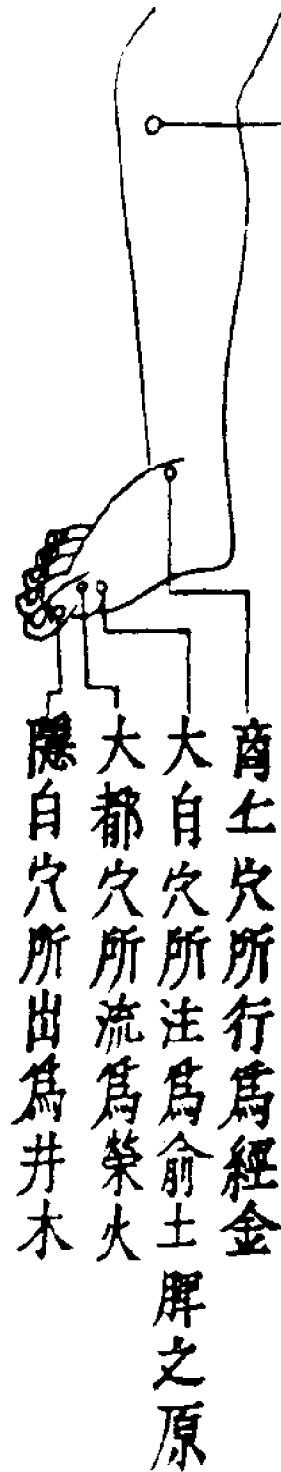 商𠀉穴所行爲經金
大白穴所注爲俞土脾之原
大都穴所流爲榮火
隱白穴所出爲井木